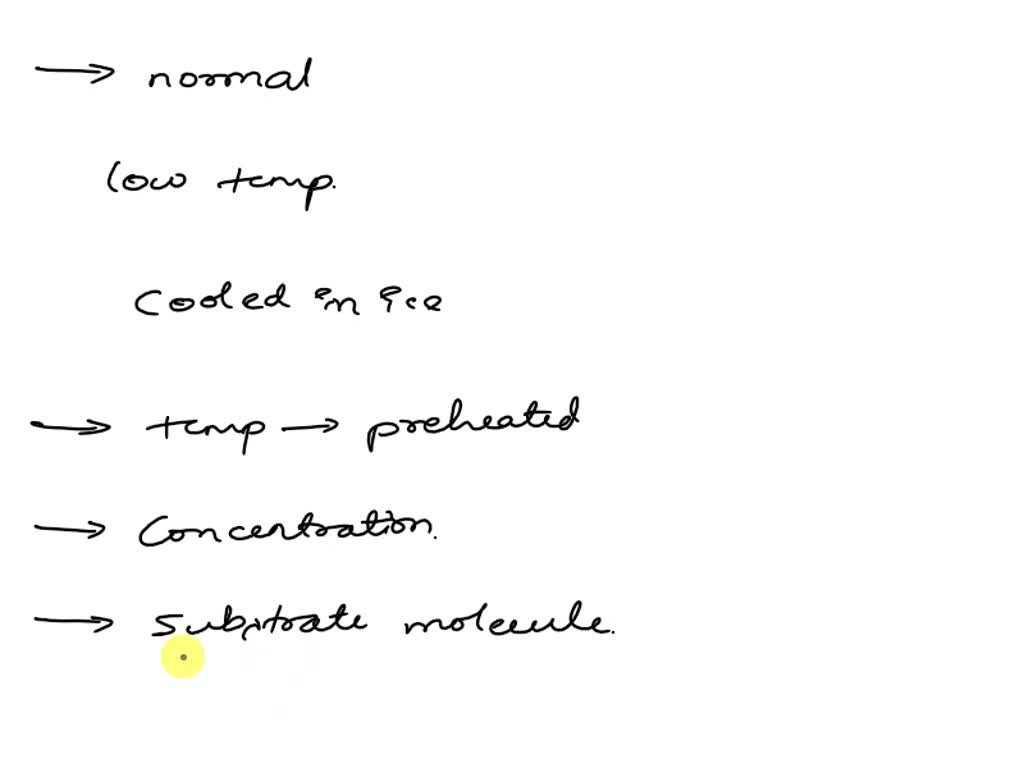 → normal
low temp.
Cooled in ice
→ temp → preheated
→ Concentration.
→ Substrate molecule.